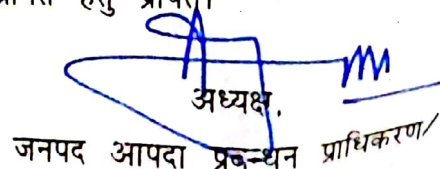 हेतु
अध्यक्ष,
जनपद आपदा प्रबन्धन प्राधिकरण/